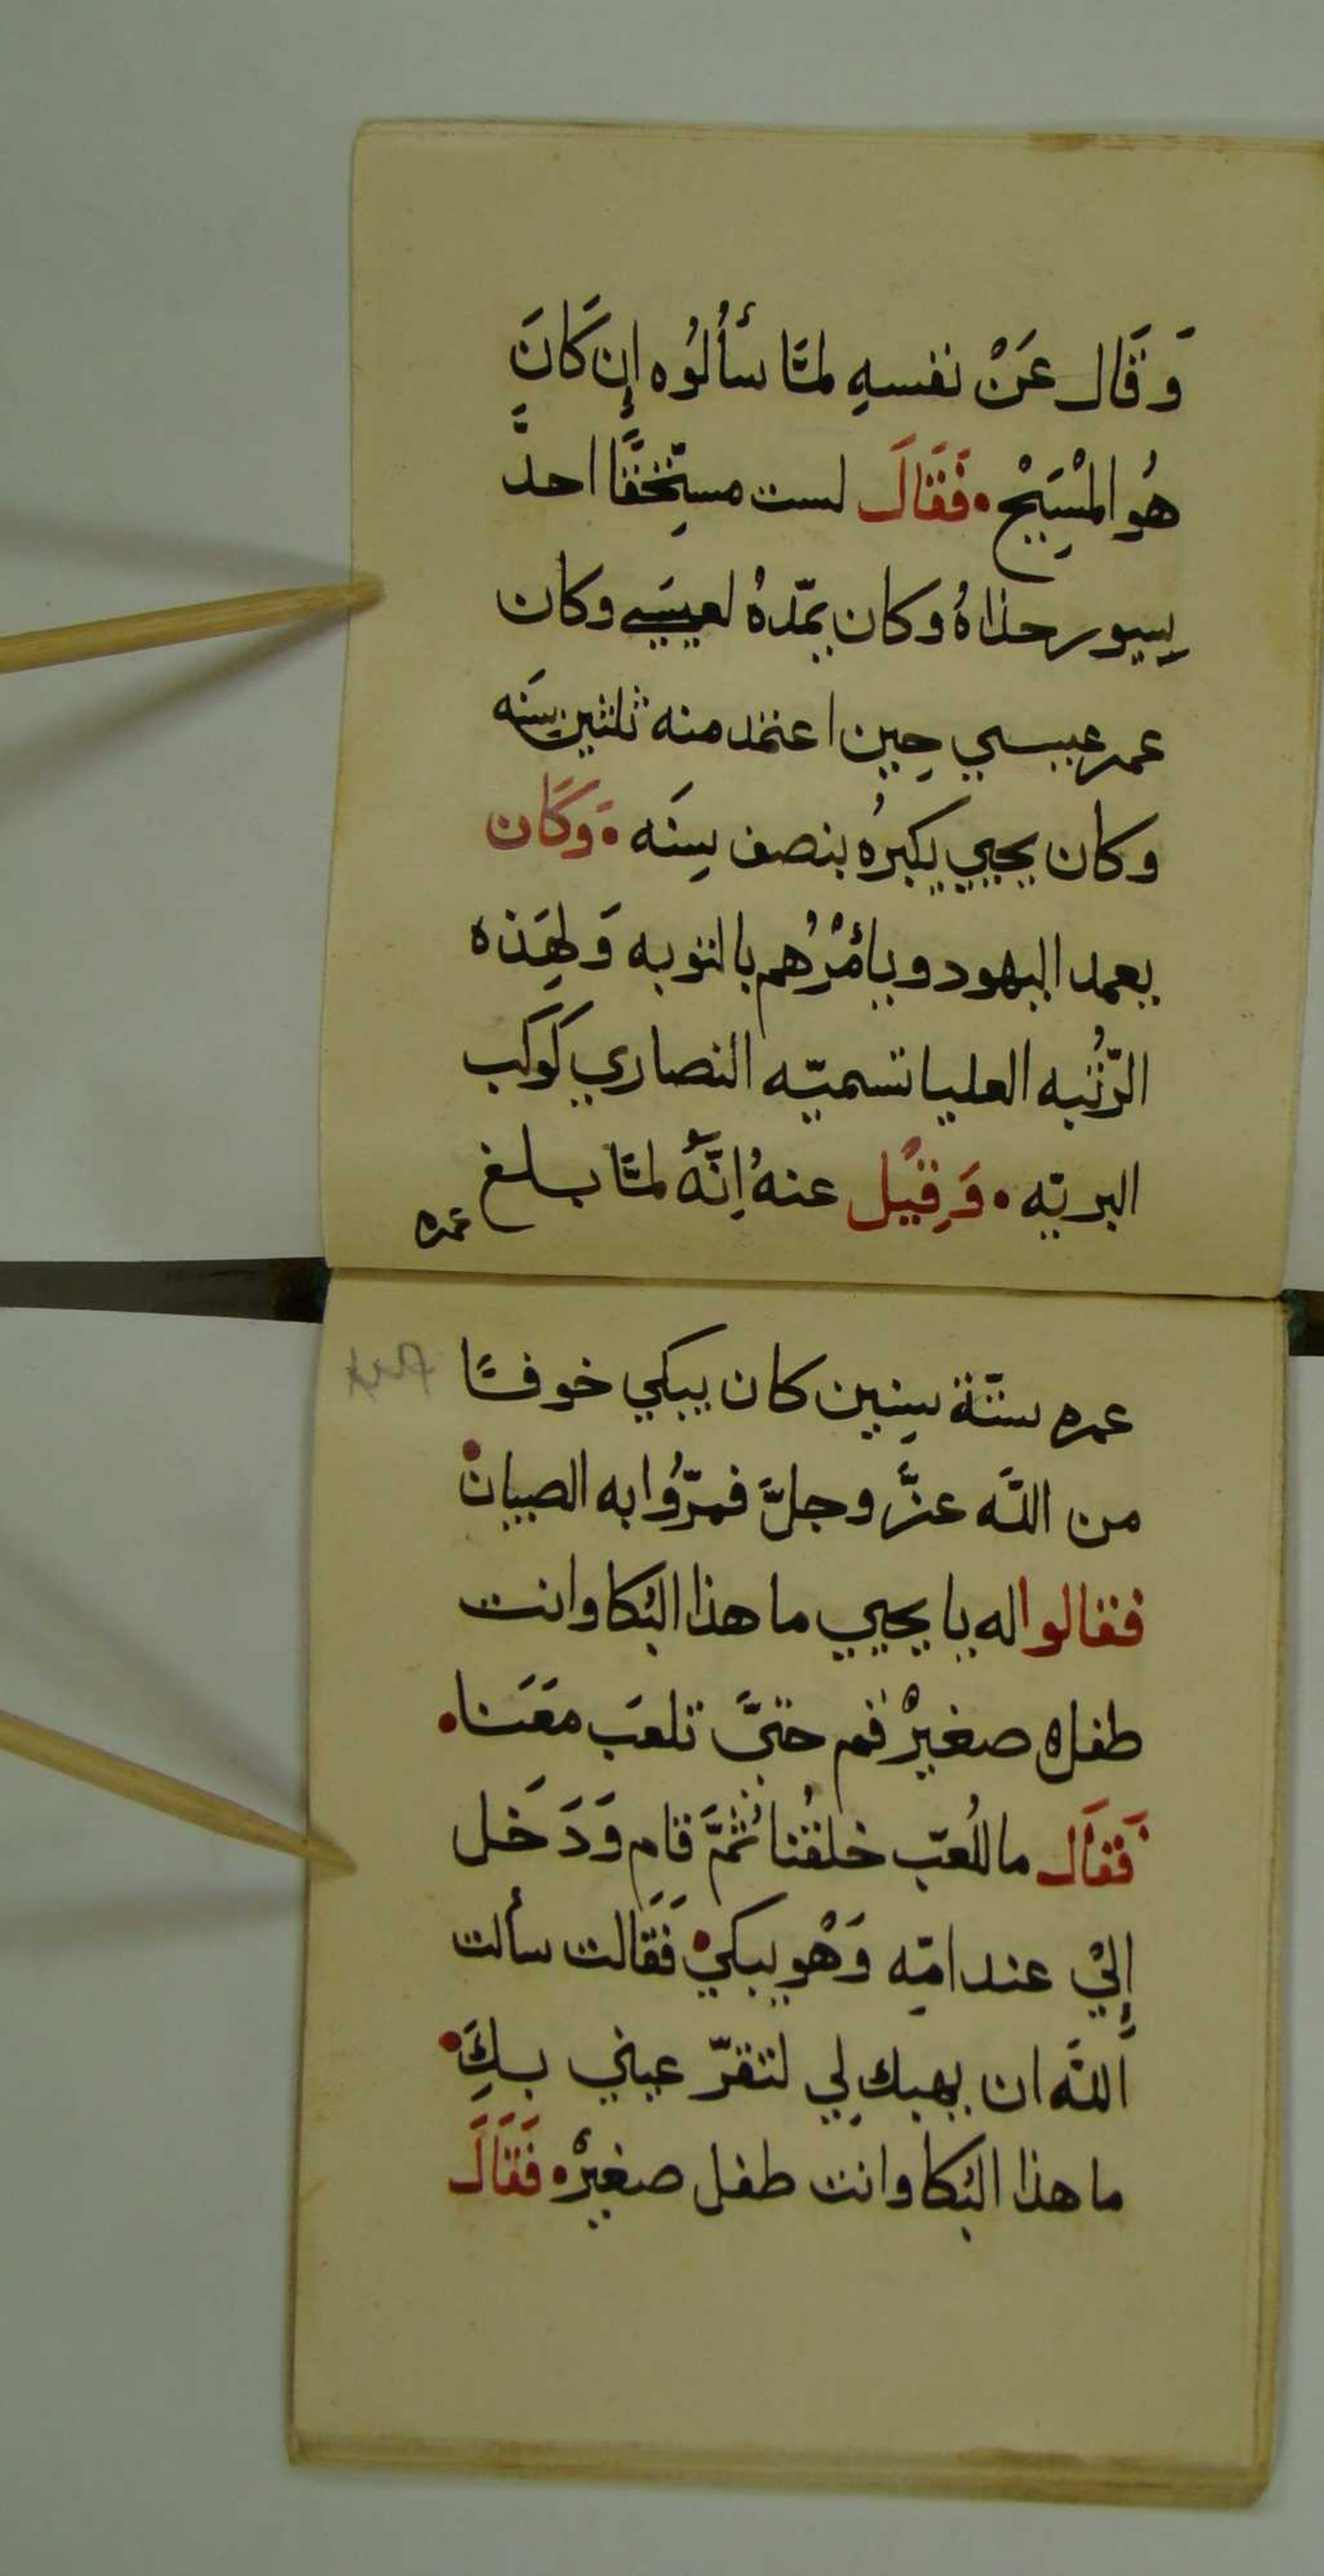 وَقَال عَنْ نفسهِ لمَّا سأَلُوُه إِن كَانَ
هُو المْسِيَحْ • فَقَالَ لست مستِحَّقًا احلَّ
سِيور حذاهُ وكان يمّدهُ لعيسَي وكان
عمر عيسي حِين اعتمد منه ثلثين سَنه
وكان يحيي يكبرُه بنصف سِنَه • وَكَان
يعمد اليهود ويأمُرْهم بالتوبه وَلهَذه
الرّتُبه العليا تسميّه النصاري كَوكَب
البريّه • وَقِيْل عنهُ اِنَّهُ لمَّا بلغ
عمره
عمره ستّة سِنين كان يبكي خوفًا
من اللَّه عزَّ وجلَّ فمرّوُا به الصبيان •
فقالوا له يا يحيي ما هذا البُكا وانت
طفله صغيرْ قم حتىَّ تلعَب معَنا •
فَقاَل ما للُعّب خلقُنا ثُمَّ قام وَدَخَل
إِليْ عند امّه وَهْو يبكيْ • فَقَالت سألت
اَللَّه ان يهبك لِي لتقرّ عيني بكَِ •
ما هذا البُكا وانت طفل صغيرْ • فَقَالَ